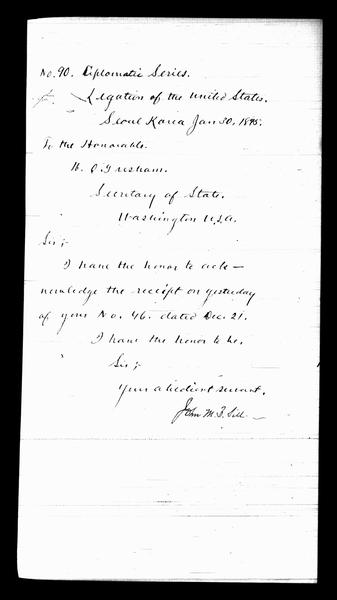 No. 90. Diplomatic Series.
Legation of the United States.
Seoul Korea Jan 30, 1895.
To the Honorable.
W. Q. Gresham.
Secretary of State.
Washington U.S.A.
Sir;-
I have the honor to ack-
nowledge the receipt on yesterday
of your No. 46. dated Dec. 21.
I have the honor to be.
Sir;-
Your obedient servant.
John M. B. Sill